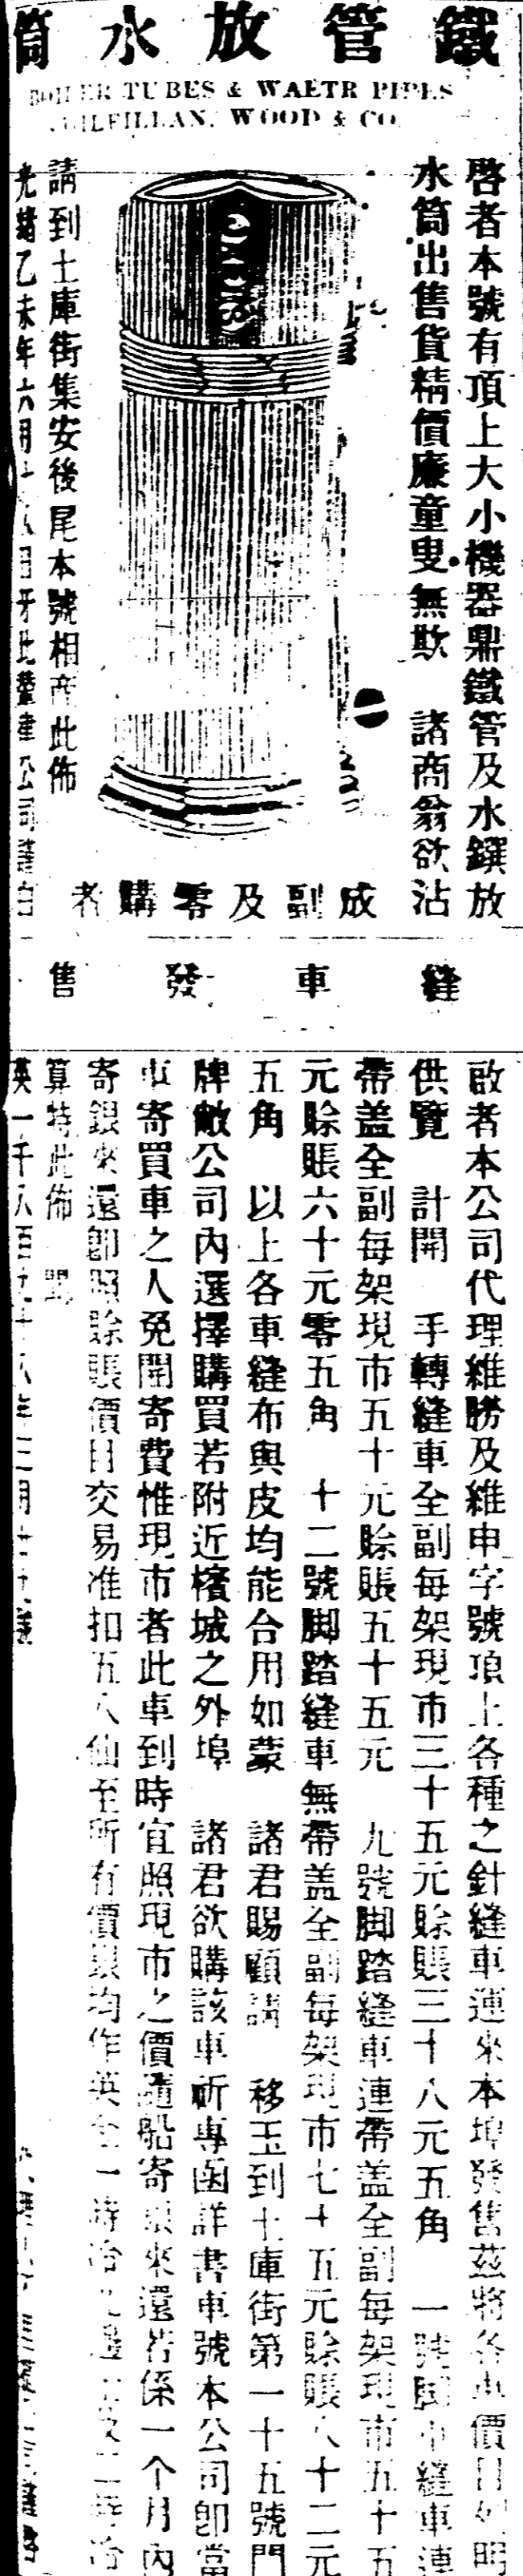 鐵管放水筒
BOILER TUBES & WAETR PIPES
GUILFILLAN, WOOD & CO.
啓者本號有頂上大小機器鼎鐵管及水鑵放
水筒出售貨精價廉童叟無欺 諸商翁欲沾
成副及零購者
請到土庫街集安後尾本號相商此佈
光緒乙未年六月十八日牙比蘭律公司謹白
縫車發售
啟者本公司代理維勝及維申字號頂上各種之針縫車運來本埠發售茲將各車價目列明
供覽 計開 手轉縫車全副每架現市三十五元賒賬三十八元五角 一號脚車縫車連
帶盖全副每架現市五十元賒賬五十五元 九號脚踏縫車連帶盖全副每架現市五十五
元賒賬六十元零五角 十二號脚踏縫車無帶盖全副每架現市七十五元賒賬八十二元
五角 以上各車縫布與皮均能合用如蒙 諸君賜顧請 移玉到土庫街第一十五號門
牌敝公司內選擇購買若附近檳城之外埠 諸君欲購該車祈專函詳書車號本公司卽當
車寄買車之人免開寄費惟現市者此車到時宜照現市之價隨船寄銀來還若係一个月內
寄銀來還卽照賒賬價目交易准扣五八仙至所有價銀均作英
算特此佈 聞
英一千八百九十八年三月廿